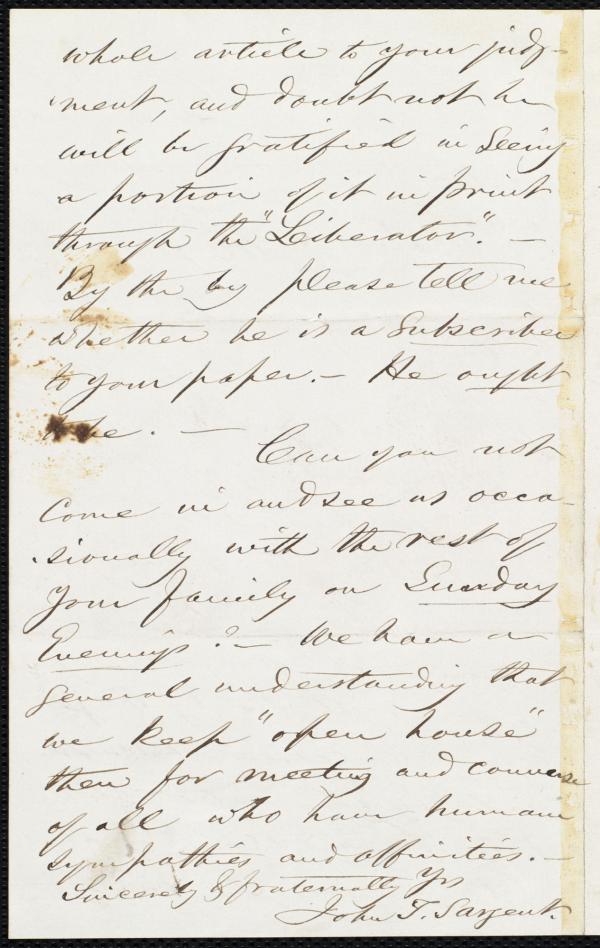 whole article to your judg-
ment, and doubt not he
will be gratified in seeing
a portion of it in print
through the "Liberator." —
By the by please tell me
whether he is a subscriber
to your paper. — He ought
to be. —
Can you not
come in and see us occa-
sionally with the rest of
your family on Sunday
Evenings? — We have a
general understanding that
we keep "open house"
then for meeting and converse
of all who have humane
sympathies and affinities. —
Sincerely & fraternally Yrs
John T. Sargent.